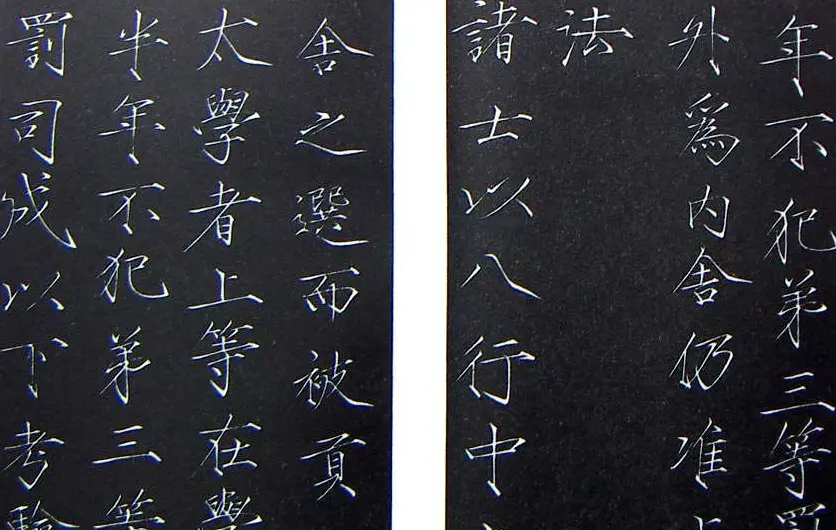 年不犯弟三等罰
外爲內舍仍准
法
諸士以八行中
舍之選而被貢
太學者上等在學
半年不犯弟三等
罰司成以下考驗